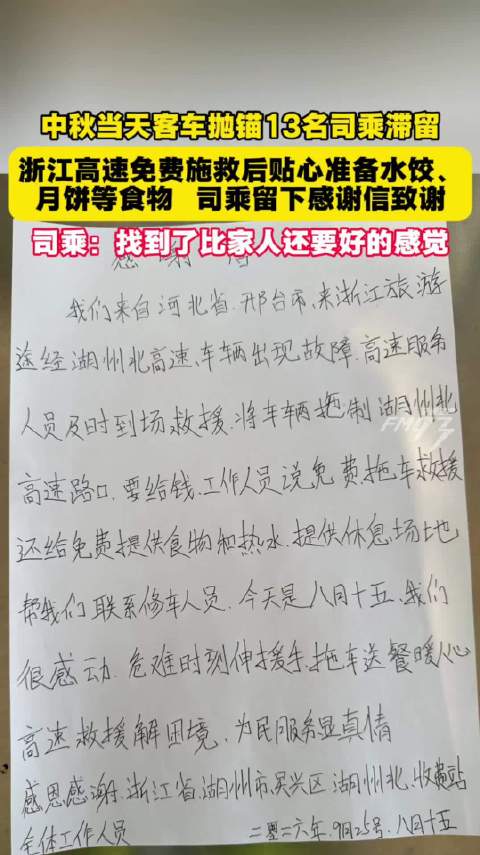 中秋当天客车抛锚13名司乘滞留
浙江高速免费施救后贴心准备水饺、
月饼等食物 司乘留下感谢信致谢
司乘：找到了比家人还要好的感觉
我们来自河北省.邢台市,来浙江旅游
途经湖州北高速、车辆出现故障.高速服务
人员及时到场救援.将车辆拖.制湖州北
FM93
高速路口.要给钱.工作人员说免费.拖车救援
还给免费提供食物和热水.提供休息场地
帮我们联系修车人员.今天是八月十五、我们
很感动.危难时刻伸援手.拖车送餐暖人心
高速救援解困境.为民服务显真情
感恩感谢.浙江省.湖州市.吴兴区湖州北.收费站
全体工作人员 二零二六年.9月25号.八月十五